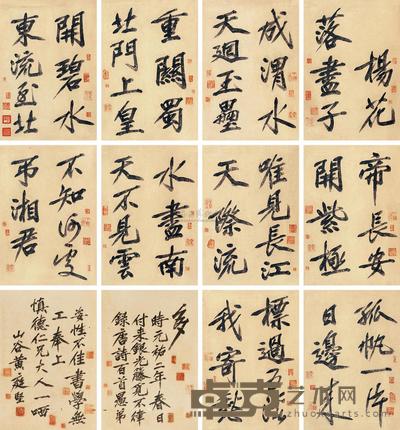 楊花
落盡子
成渭水
天廻玉壘
重關蜀
北門上皇
開碧水
東流至北
帝長安
開紫極
唯見長江
天際流
水盡南
天不見雲
不知何處
吊湘君
孤帆一片
日邊來
標過五溪
我寄愁
多
時元祐二年春日
付來銀光藤亮不律
録唐詩百首愚弟
安性不佳書學無
工奉上
慎德仁兄大人一哂
山谷黄庭堅